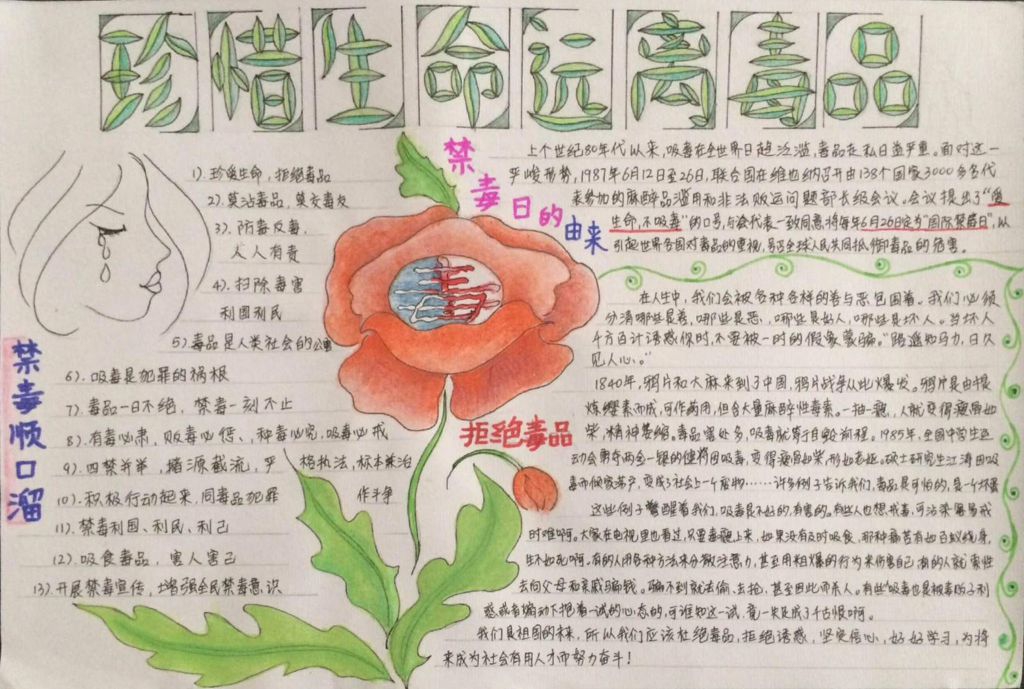 珍惜生命远离毒品
禁毒顺口溜
1). 珍爱生命，拒绝毒品
2). 莫沾毒品，莫交毒友
3). 防毒反毒，
人人有责
4). 扫除毒害
利国利民
5) 毒品是人类社会的公害
6). 吸毒是犯罪的祸根
7). 毒品一日不绝，禁毒一刻不止
8). 有毒必肃，贩毒必惩、种毒必究，吸毒必戒
9). 四禁并举，堵源截流，严格执法，标本兼治
10). 积极行动起来，同毒品犯罪作斗争
11). 禁毒利国、利民、利己
12). 吸食毒品，害人害己
13). 开展禁毒宣传，增强全民禁毒意识
毒
拒绝毒品
禁毒日的由来
上个世纪80年代以来，吸毒在全世界日趋泛滥，毒品走私日益严重。面对这一
严峻形势，1987年6月12日至26日，联合国在维也纳召开由138个国家3000多名代
表参加的麻醉品滥用和非法贩运问题部长级会议。会议提出了“爱
生命，不吸毒”的口号，与会代表一致同意将每年6月26日定为“国际禁毒日”，以
引起世界各国对毒品的重视，号召全球人民共同抵御毒品的危害。
在人生中，我们会被各种各样的善与恶包围着。我们必须
分清哪些是善，哪些是恶，哪些是好人，哪些是坏人。当坏人
千方百计诱惑你时，不要被一时的假象蒙骗。“路遥知马力，日久
见人心。”
1840年，鸦片和大麻来到了中国，鸦片战争从此爆发。鸦片是由提
炼罂粟而成，可作药用，但含大量麻醉性毒素。一抽一瘾，人就变得瘦骨如
柴，精神萎缩。毒品害处多，吸毒就等于自毁前程。1985年，全国中学生运
动会勇夺两金一银的健将因吸毒，变得瘦骨如柴，形如老妪。硕士研究生江涛因吸
毒而倾家荡产，变成了社会上一个废物……许多例子告诉我们，毒品是可怕的，是一个坏蛋
这些例子警醒着我们，吸毒是不好的，有害的。有些人也想戒毒，可沾染容易戒
时难啊。大家在电视里也看过，只要毒瘾上来，如果没有及时吸食，那种痛苦有如百蚁绕身，
生不如死啊。有的人用各种方法来分散注意力，甚至用粗爆的行为来伤害自己，有的人就索性
去向父母和亲戚骗钱。骗不到就去偷、去抢，甚至因此而杀人。有些吸毒也是被毒贩子利
惑或者煽动下抱着一试的心态的，可谁知这一试，竟一失足成了千古恨啊。
我们是祖国的未来，所以我们应该杜绝毒品，拒绝诱惑，坚定信心，好好学习，为将
来成为社会有用人才而努力奋斗！